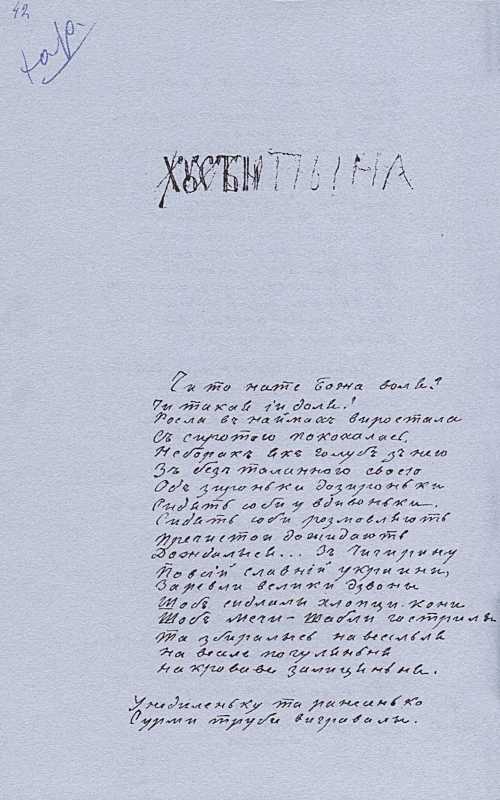 42
хар.
Чи то така Божа воля?
Чи такая ій доля!
Росла въ наймахъ виростала
Съ сиротою покохалась,
Неборакъ якъ голубъ зъ нею
Зъ безталанною своею
Одъ зироньки до зироньки
Сидять соби у вдивоньки.
Сидять соби розмовляють
Пречистои дожидають
Дождались... Зъ Чигирину
По всій славній украини,
Заревли велики дзвоны
Щобъ сидлали хлопци кони
Щобъ мечи-шабли гострили
Та збирались на весильля
На веселе погуляньня
На криваве залицяньня.
У недиленьку та раненько
Сурми труби вигравалы.